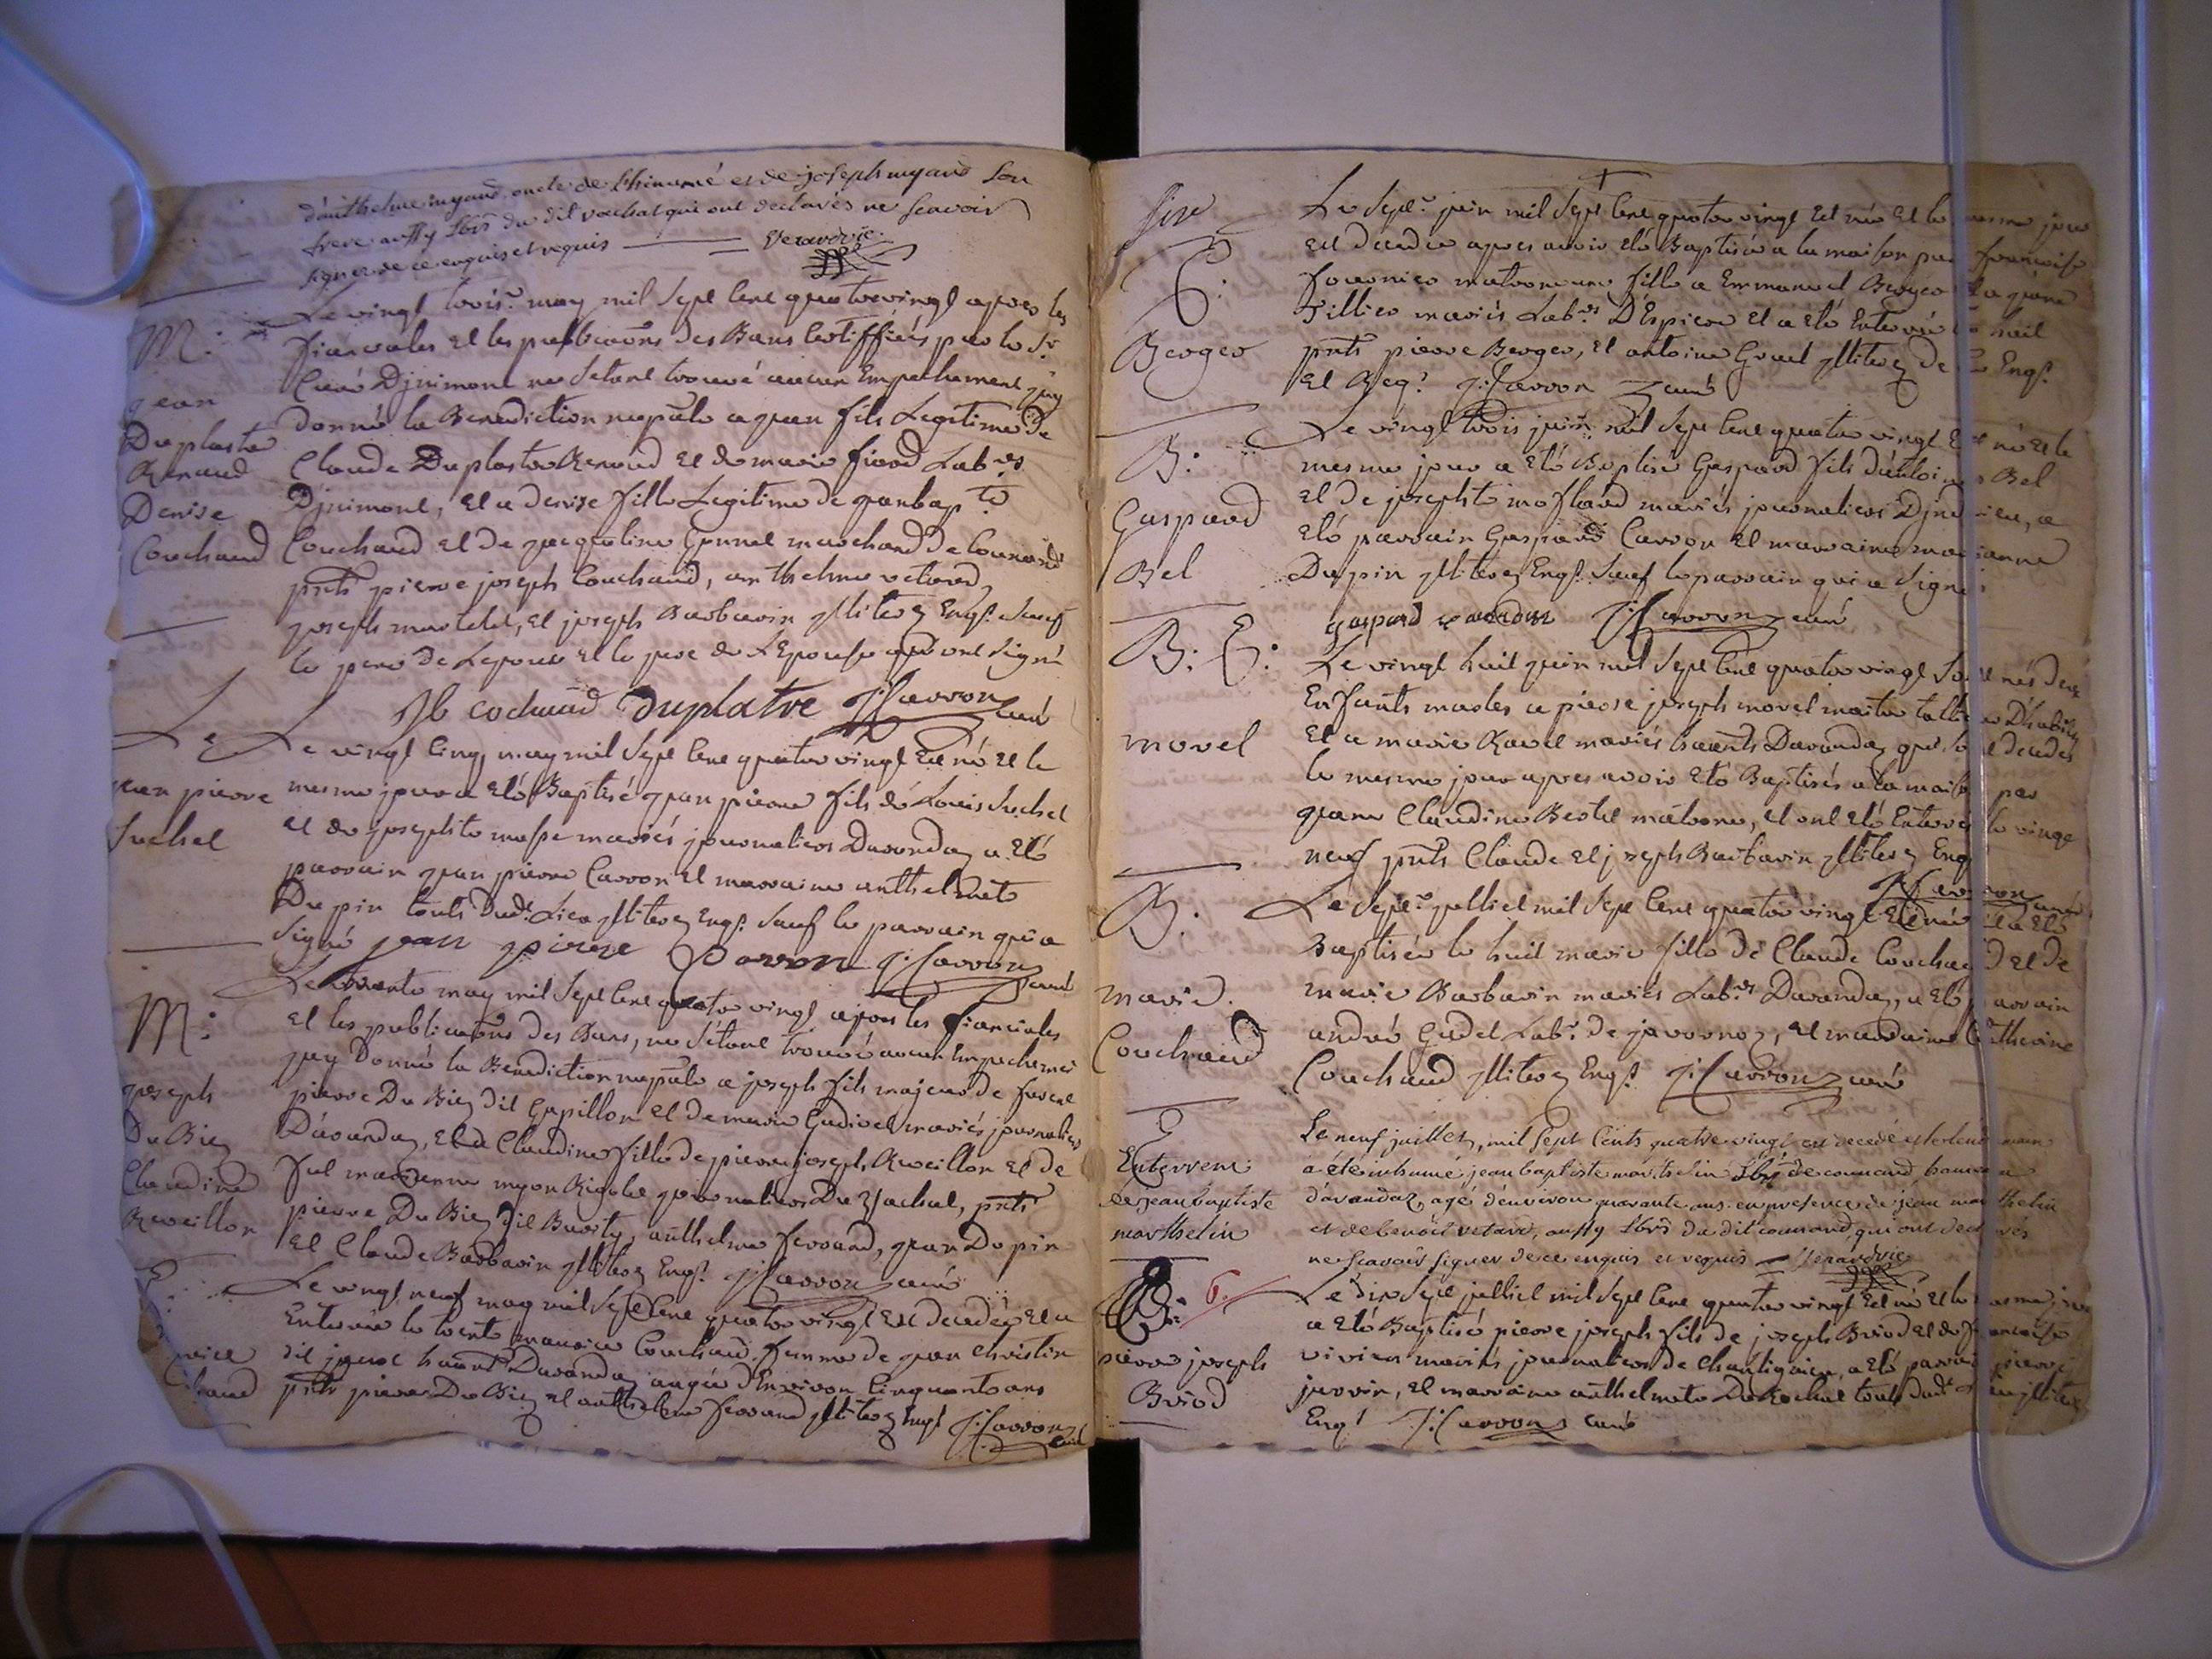 d'anthelme myand oncle de l'hinumé et de joseph myand son
frere aussy lbrs du dit vouchat qui ont declarés ne scavoir
signer de ce enquis et requis Verardvic.
M:
jean
Duplastre
Renaud
Denise
Couchaud
Le vingt trois.e may mil sept cent quatrevingt apres les
fiancailes et les publicaõns des Bans certiffiées par le Sr
Curé D'jnimont ne s'etant trouvé aucun Empechement j'ay
donné la Benediction nuptãle a jean fils Legitime de
Claude Duplastre Renaud et de marie fiard Lab.rs
D'jnimont, et a denise fille Legitime de jeanbap.te
Couchaud et de jacqueline Grunel marchand de Counand
pnts pierre joseph Couchaud, anthelme vetard,
joseph martelet, et joseph Barbarin jlliterez Enq.s sauf
le pere de L'epoux et le pere de L'Epouse qui ont signé
Jb cochaud duplatre J:Carron curé
jean pierre
Suchel
Le vingt cinq may mil sept cent quatre vingt Est né et le
mesme jour a Eté Baptisé jean pierre fils de Louis Suchel
et de josephte masse mariés journaliers Davanday a Eté
parrain jean pierre Carron et marraine anthelmete
Dupin touts Dud.t Lieu jlliterez Enq.s sauf le parrain qui a
signé jean pierre Carron J:Carron curé
M:
joseph
Du Biez
Claudine
Reveillon
Le trente may mil sept cent quatre vingt apres les fiancailes
et les publicaõns des Bans, ne s'étant trouvé aucun Empechement
j'ay Donné la Benediction nuptãle a joseph fils majeur de feu
pierre Du Biez dit Gapillon et de marie Gudivel mariés journaliers
D'avanday, et a Claudine fille de pierre joseph Reveillon et de
marianne myon Rigole journaliers Du Vachat, pnts
pierre Du Biez dit Buisty, anthelme ferrand, jean Dupin
et Claude Barbarin jlliterez Enq.s J:Carron curé
E:
Le vingt neuf may mil sept cent quatre vingt Est decedée et a
Enterrée le trente maurice Couchaud femme de jean christin
dit jacot haants Davanday aagée d'Environ Cinquante ans
pnts pierre Du Biez et anthelme ferrand jlliterez Enq.s J:Carron curé
E:
Berger
Le sept.e juin mil sept cent quatre vingt est née et le mesme jour
est decedée apres avoir eté Baptisée a la maison par francoise
fournier matronne une fille a Emmanuel Berger
Tillier mariés Lab.rs D'Espierre et a eté Enterrée le huit
pnts pierre Berger, et antoine Gruel jlliterez de ce Enq.s
et Req.s J:Carron curé
B:
Gaspard
Bel
Le vingt trois juin mil sept cent quatre vingt Est né et le
mesme jour a Eté Baptisé Gaspard fils d'antoine Bel
et de josephte mollard mariés journaliers D'jnd
Eté parrain Gaspard Carron et marraine marianne
Dupin jlliterez Enq.s sauf le parrain qui a signé
gaspard J:Carron curé
B: E:
morel
Le vingt huit juin mil sept cent quatre vingt sont nés deux
Enfants masles a pierre joseph morel maitre tallieur D'habits
et a marie Ravel mariés haants Davanday qui sont decedés
le mesme jour apres avoir eté Baptisés a la maison par
jeane Claudine Bertet matrone, et ont eté Enterrez le vingt
neuf pnts Claude et joseph Barbarin jlliterez Enq.s
J:Carron curé
B:
marie
Couchaud
Le sept.e julliet mil sept cent quatre vingt Est née et a eté
Baptisée le huit marie fille de Claude Couchaud et de
marie Barbarin mariés Lab.rs Davanday, a eté parrain
andré Gudet Lab.r de javornoz, et marraine Catherine
Couchaud jlliterez Enq.s J:Carron curé
Enterrem.
de jean baptiste
marthelin
Le neuf juillet, mil sept cents quatre vingt est decedé et le lendemain
a été inhumé jean baptiste marthelin lbr de counand hameau
d'avandaz, agé d'environ quarante ans. en presence de jean marthelin
et de benoit vetard, aussy lbrs du dit counand, qui ont declarés
ne scavoir signer de ce enquis et requis Verardvic.
B: 6.
pierre joseph
Briod
Le dix sept julliet mil sept cent quatre vingt Est né et le mesme jour
a eté Baptisé pierre joseph fils de joseph Briod et de francoise
vivier mariés journaliers de chantignieu, a eté parrain pierre
jarrin, et marraine anthelmete Durochat touts dud.t Lieu jlliterez
Enq.s J:Carron curé